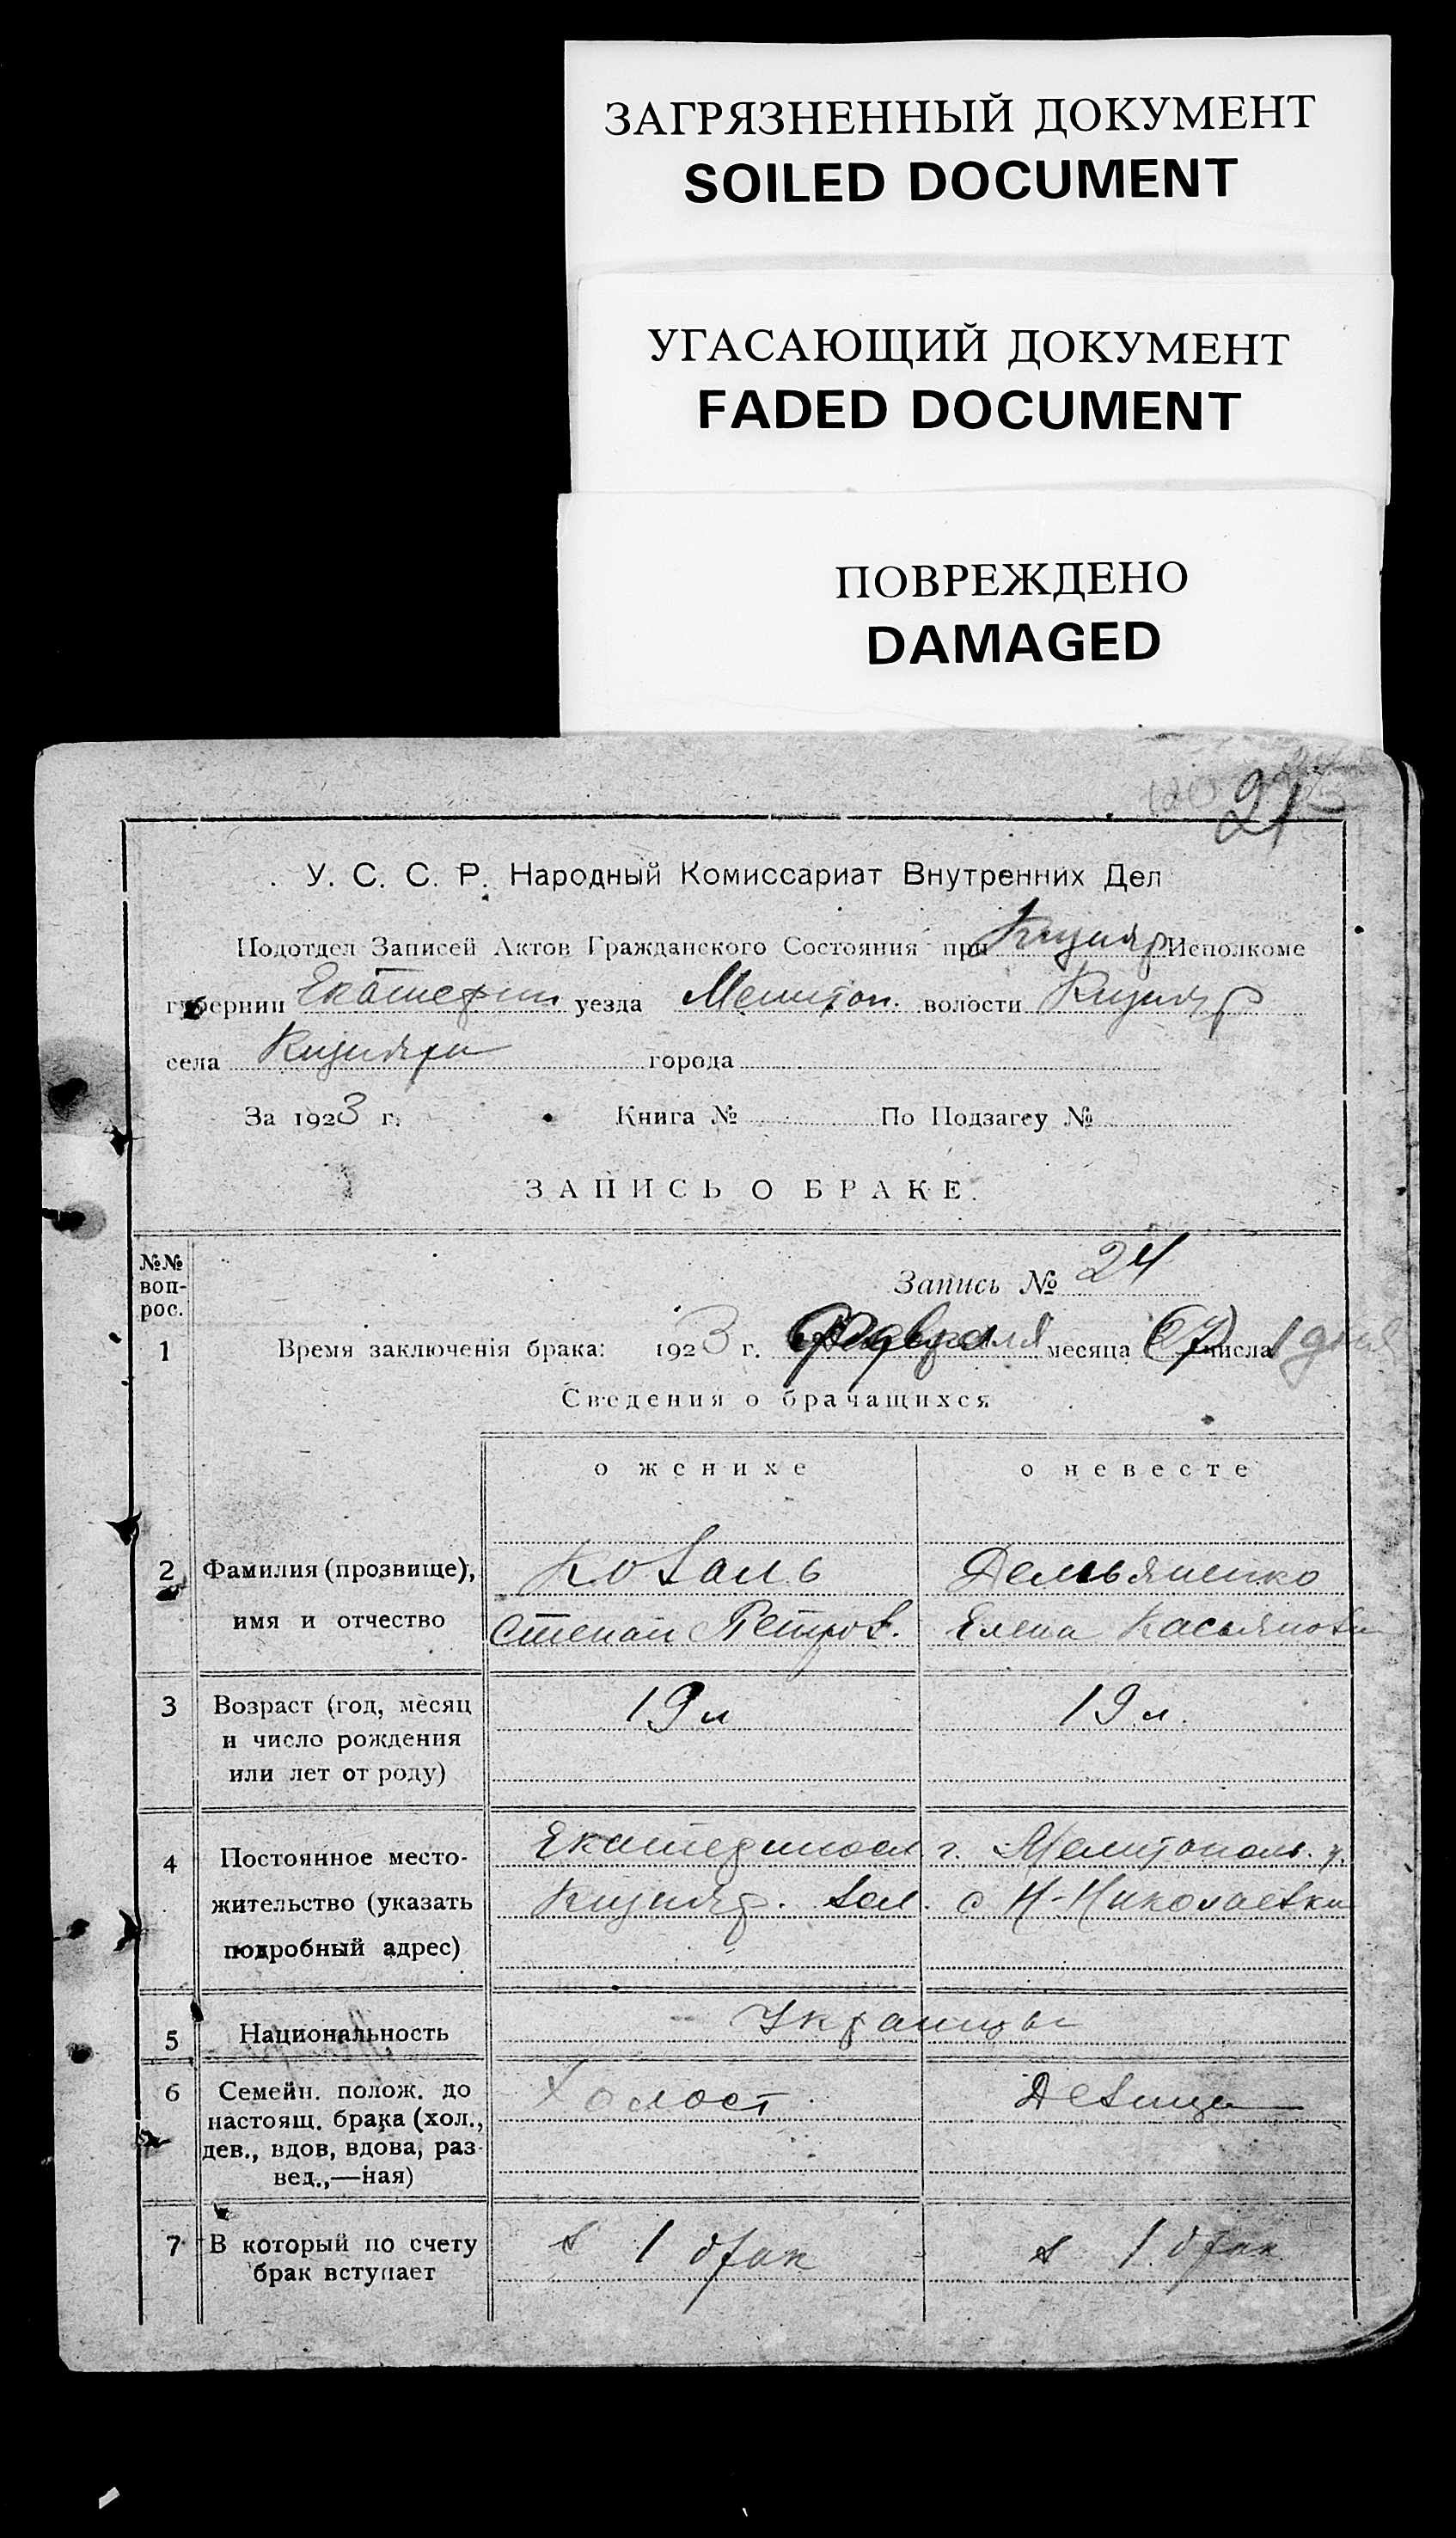 ЗАГРЯЗНЕННЫЙ ДОКУМЕНТ
SOILED DOCUMENT
УГАСАЮЩИЙ ДОКУМЕНТ
FADED DOCUMENT
ПОВРЕЖДЕНО
DAMAGED
21
У. С. С. Р. Народный Комиссариат Внутренних Дел
Подотдел Записей Актов Гражданского Состояния при Кизияр Исполкоме
губернии Екатерин уезда Мелитоп. волости Кизияр
села Кизияри города
За 1923 г. Книга № По Подзагсу №
ЗАПИСЬ О БРАКЕ.
№№ воп-рос.
Запись № 24
1 Время заключенія брака: 1923 г. месяца числа
Сведения о брачащихся
о женихе о невесте
2 Фамилия (прозвище), Коваль Демьяненко
имя и отчество Степан Петров. Елена Касьянов
3 Возраст (год, месяц 19 л 19 л.
и число рождения
или лет от роду)
4 Постоянное место- Екатериносл г. Мелитополь. у.
жительство (указать Кизияр. вол. с Н-Николаевки
подробный адрес)
5 Национальность Украинцы
6 Семейн. полож. до Холост Девица
настоящ. брака (хол.,
дев., вдов, вдова, раз-
вед.,—ная)
7 В который по счету в 1 брак в 1 брак
брак вступает